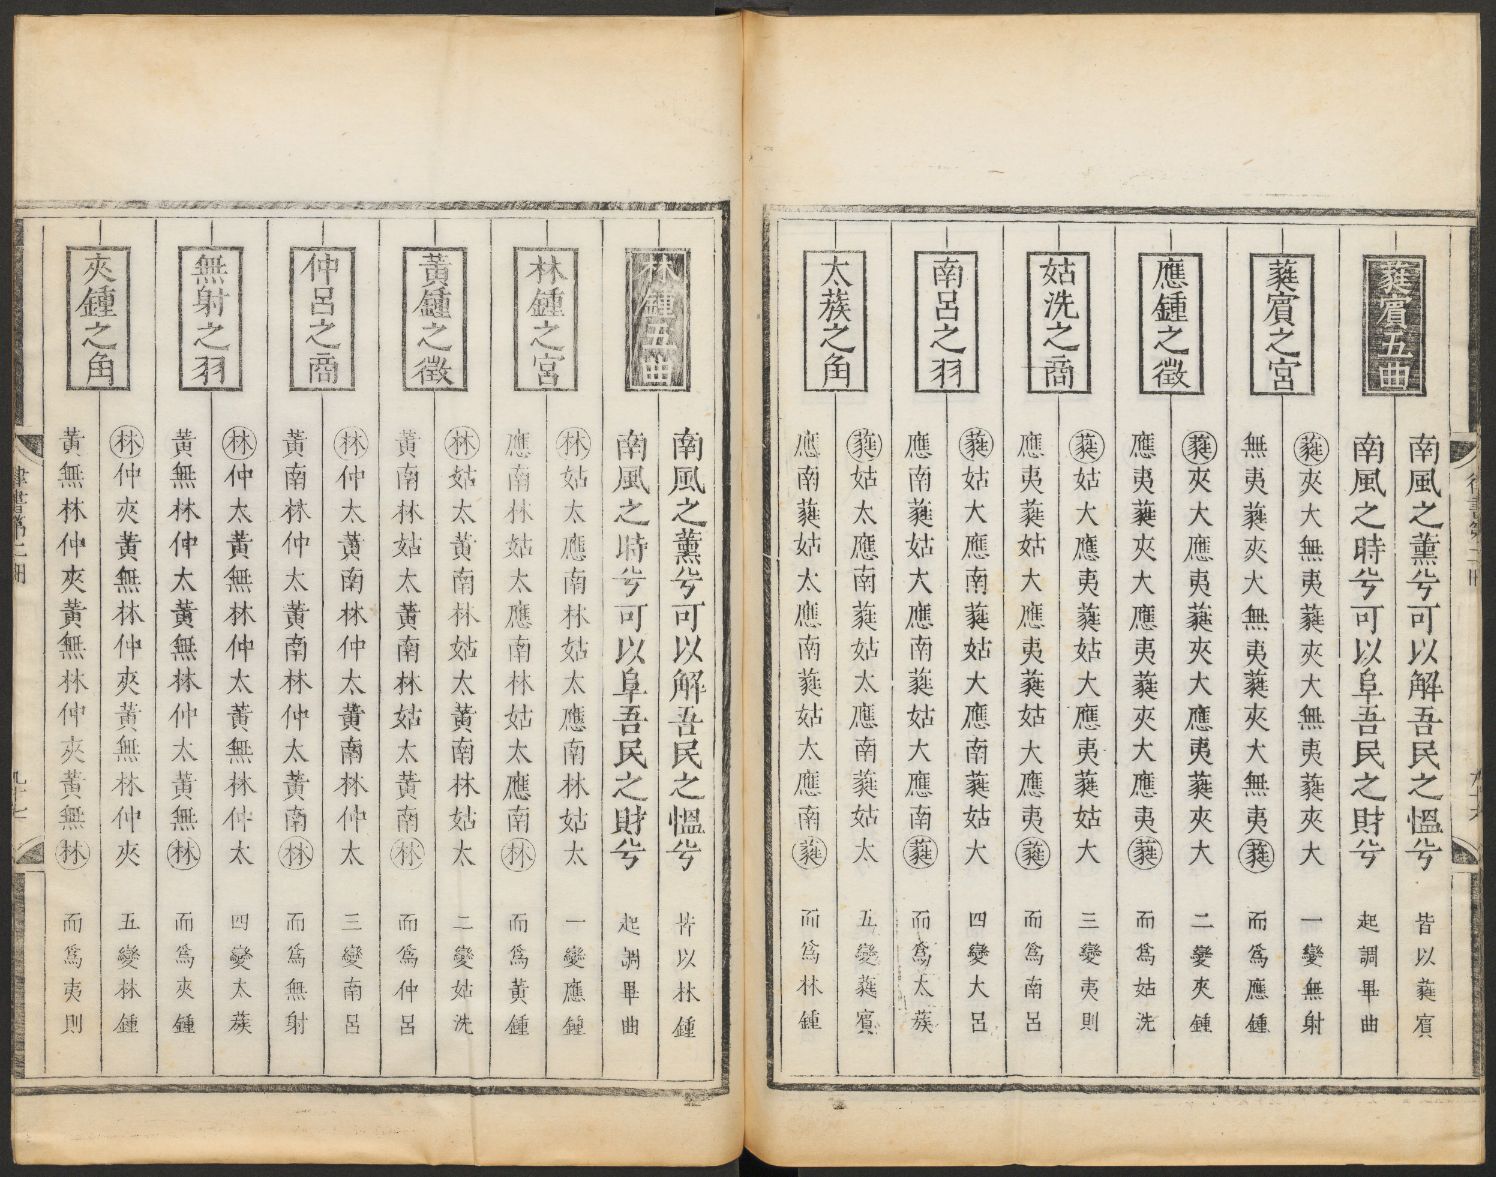 蕤賓五曲
南風之薰兮可以解吾民之慍兮 皆以蕤賓
南風之時兮可以阜吾民之財兮 起調畢曲
蕤賓之宮
蕤夾大無夷蕤夾大無夷蕤夾大 一變無射
無夷蕤夾大無夷蕤夾大無夷蕤 而爲應鍾
應鍾之徵
蕤夾大應夷蕤夾大應夷蕤夾大 二變夾鍾
應夷蕤夾大應夷蕤夾大應夷蕤 而爲姑洗
姑洗之商
蕤姑大應夷蕤姑大應夷蕤姑大 三變夷則
應夷蕤姑大應夷蕤姑大應夷蕤 而爲南呂
南呂之羽
蕤姑大應南蕤姑大應南蕤姑大 四變大呂
應南蕤姑大應南蕤姑大應南蕤 而爲太蔟
太蔟之角
蕤姑太應南蕤姑太應南蕤姑太 五變蕤賓
應南蕤姑太應南蕤姑太應南蕤 而爲林鍾
林鍾五曲
南風之薰兮可以解吾民之慍兮 皆以林鍾
南風之時兮可以阜吾民之財兮 起調畢曲
林鍾之宮
林姑太應南林姑太應南林姑太 一變應鍾
應南林姑太應南林姑太應南林 而爲黃鍾
黃鍾之徵
林姑太黃南林姑太黃南林姑太 二變姑洗
黃南林姑太黃南林姑太黃南林 而爲仲呂
仲呂之商
林仲太黃南林仲太黃南林仲太 三變南呂
黃南林仲太黃南林仲太黃南林 而爲無射
無射之羽
林仲太黃無林仲太黃無林仲太 四變太蔟
黃無林仲太黃無林仲太黃無林 而爲夾鍾
夾鍾之角
林仲夾黃無林仲夾黃無林仲夾 五變林鍾
黃無林仲夾黃無林仲夾黃無林 而爲夷則